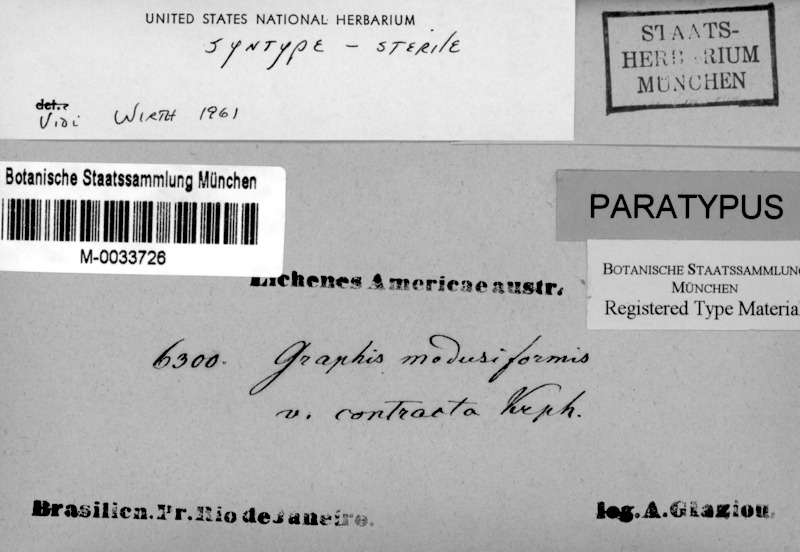 UNITED STATES NATIONAL HERBARIUM
SYNTYPE – STERILE
det.
Vidi WIRTH 1961
STAATS-
HERBARIUM
MÜNCHEN
Botanische Staatssammlung München
M-0033726
PARATYPUS
BOTANISCHE STAATSSAMMLUNG
MÜNCHEN
Registered Type Material
Lichenes Americae austr.
6300. Graphis medusiformis
v. contracta Krph.
Brasilien. Pr. Rio de Janeiro.
leg. A. Glaziou.